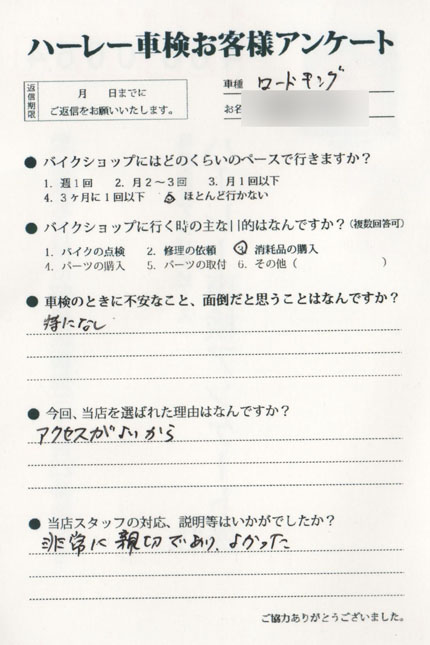 ハーレー車検お客様アンケート
返信期限
月　日までに
ご返信をお願いいたします。
車種 ロードキング
お名
● バイクショップにはどのくらいのペースで行きますか？
1. 週1回　2. 月2～3回　3. 月1回以下
4. 3ヶ月に1回以下　5. ほとんど行かない
● バイクショップに行く時の主な目的はなんですか？(複数回答可)
1. バイクの点検　2. 修理の依頼　3. 消耗品の購入
4. パーツの購入　5. パーツの取付　6. その他（　　　）
● 車検のときに不安なこと、面倒だと思うことはなんですか？
特になし
● 今回、当店を選ばれた理由はなんですか？
アクセスがよいから
● 当店スタッフの対応、説明等はいかがでしたか？
非常に親切であり、よかった
ご協力ありがとうございました。